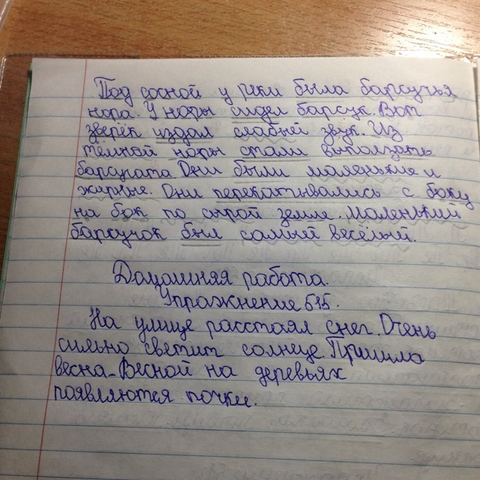 Под сосной у реки была барсучья
нора. У норы сидел барсук. Вот
зверёк издал слабый звук. Из
тёмной норы стали выползать
барсучата. Они были маленькие и
жирные. Они перекатывались с боку
на бок по сырой земле. Маленький
барсучок был самый весёлый.
Домашняя работа.
Упражнение 515.
На улице расстаял снег. Очень
сильно светит солнце. Пришла
весна. Весной на деревьях
появляются почки.